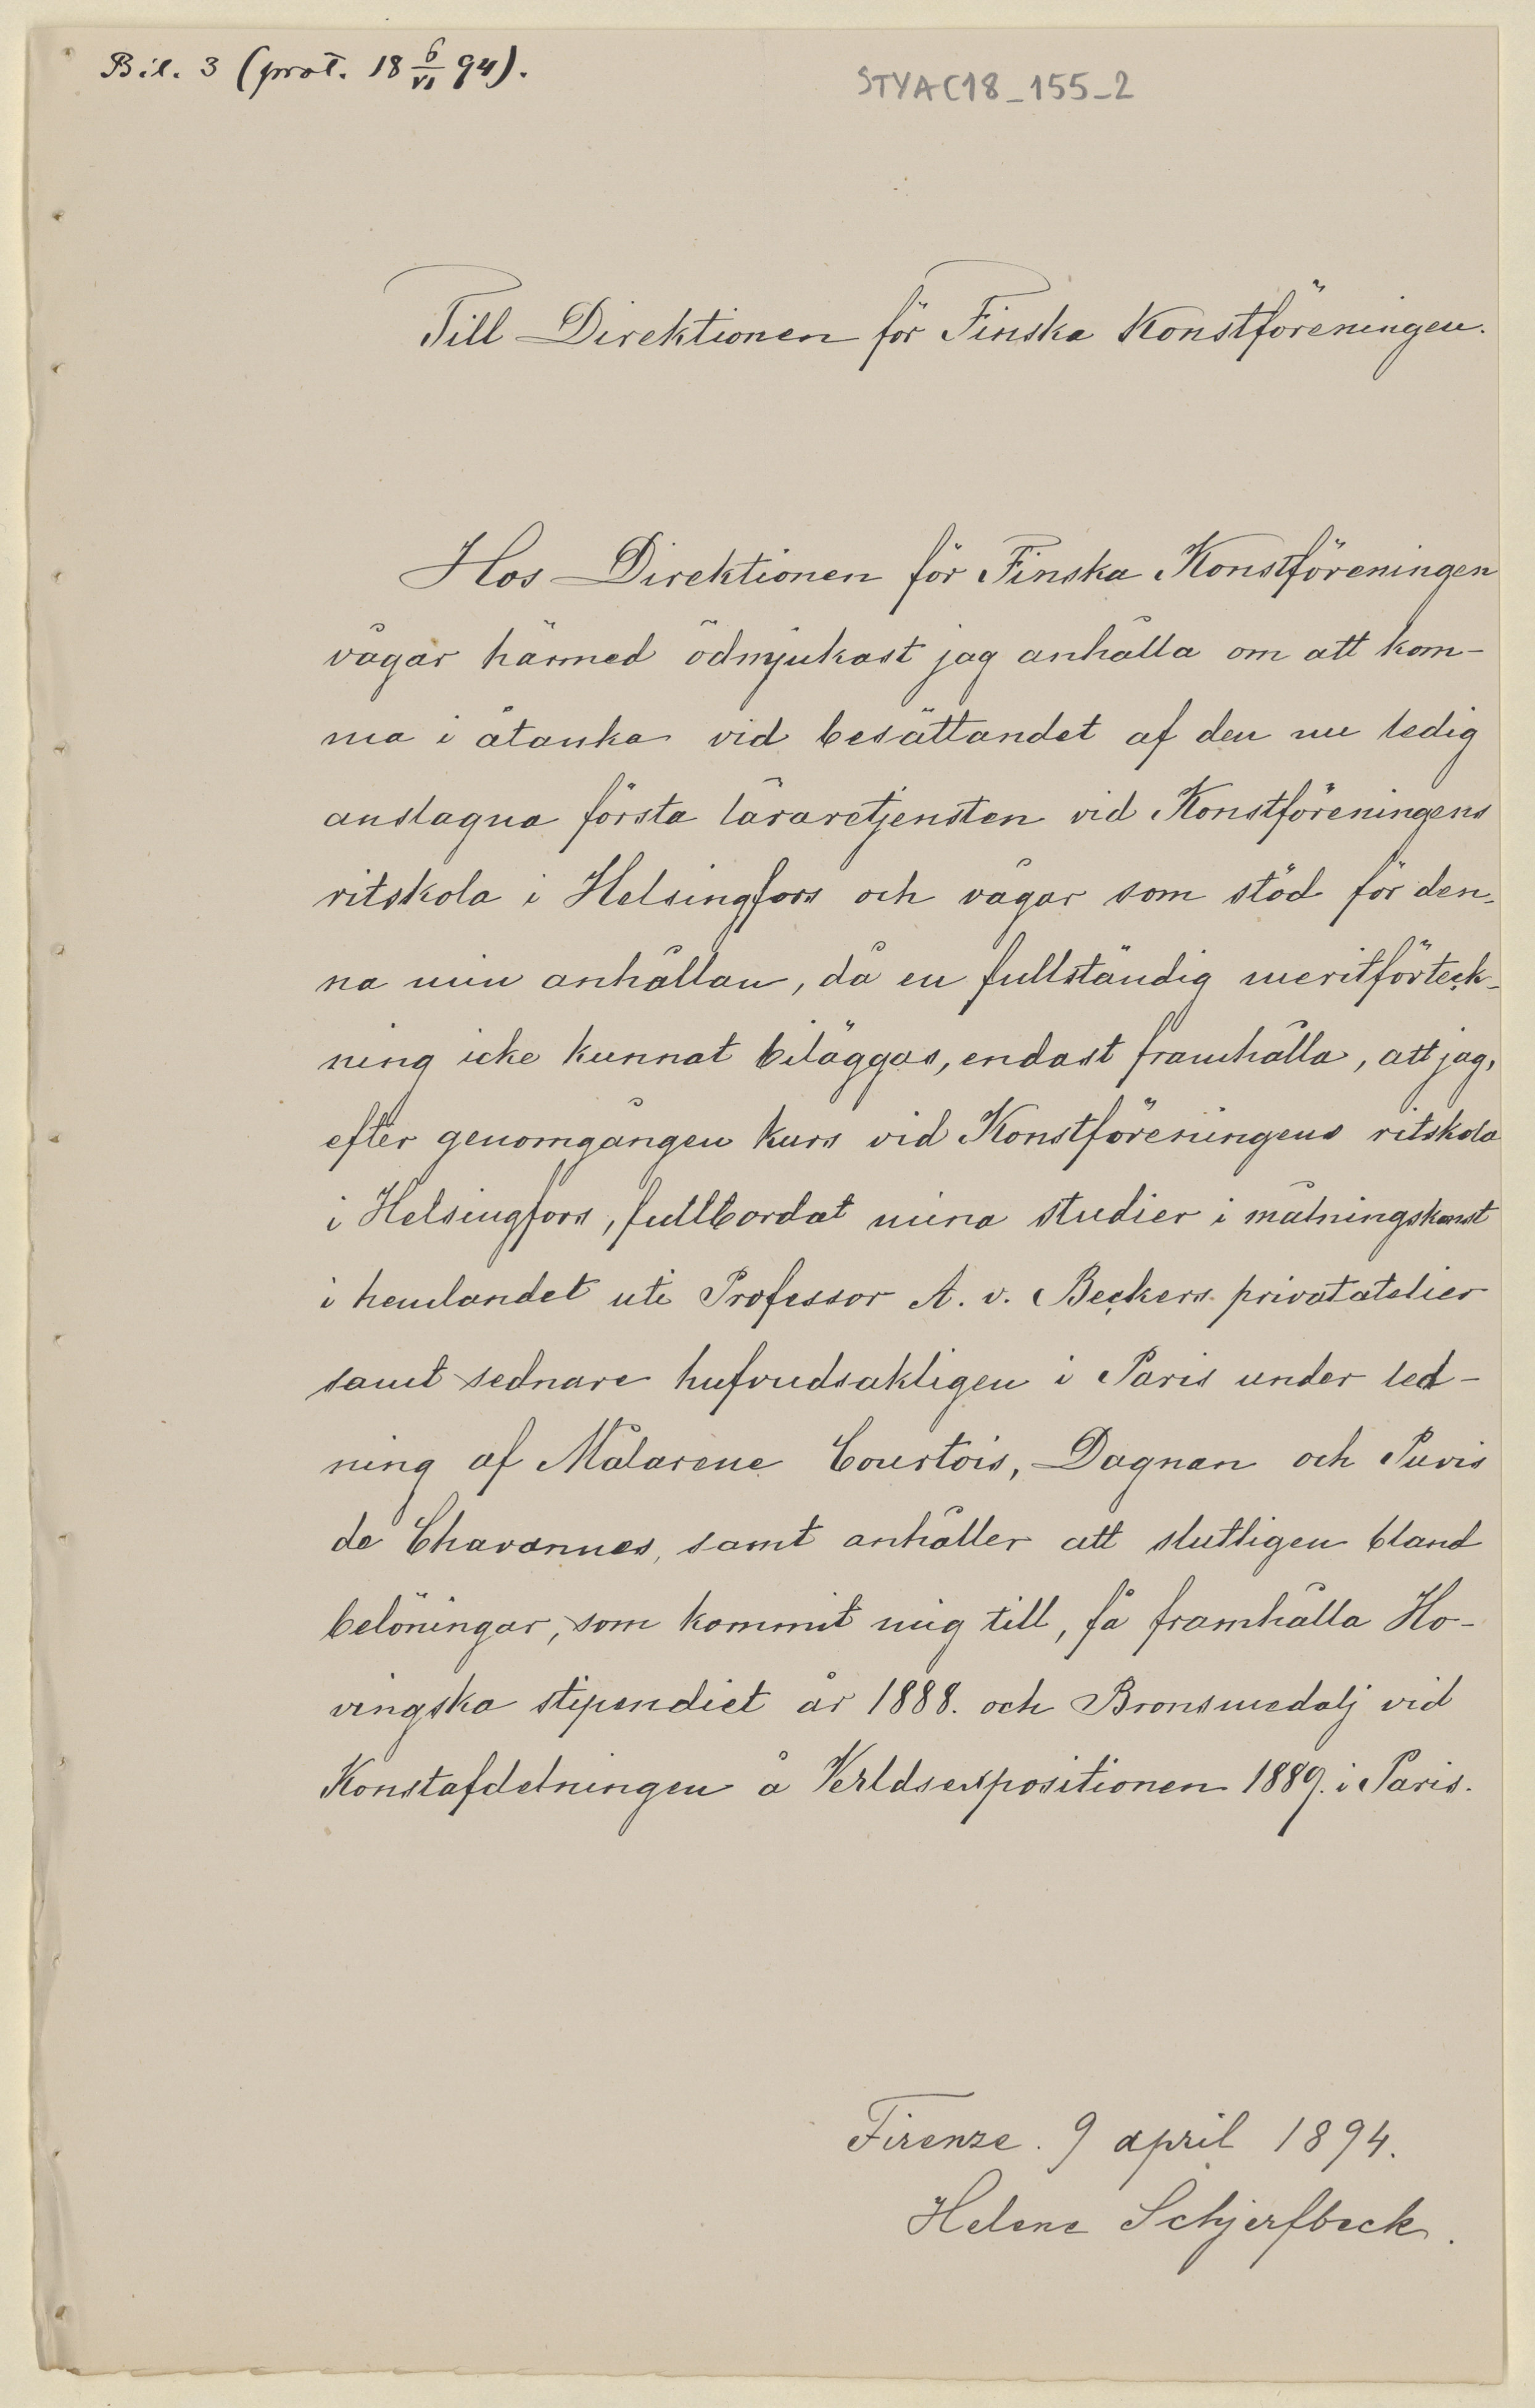 Bil. 3 (prot. 18 6/VI 94).
STYA C18_155_2
Till Direktionen för Finska Konstföreningen.
Hos Direktionen för Finska Konstföreningen
vågar härmed ödmjukast jag anhålla om att kom-
ma i åtanke vid besättandet af den nu ledig
anslagna första läraretjensten vid Konstföreningens
ritskola i Helsingfors och vågar som stöd för den-
na min anhållan, då en fullständig meritförteck-
ning icke kunnat biläggas, endast framhålla, att jag,
efter genomgången kurs vid Konstföreningens ritskola
i Helsingfors, fullbordat mina studier i målningskonst
i hemlandet uti Professor A. v. Beckers privatatelier
samt sednare hufvudsakligen i Paris under led-
ning af Målarene Courtois, Dagnan och Puvis
de Chavannes, samt anhåller att slutligen bland
belöningar, som kommit mig till, få framhålla Ho-
vingska stipendiet år 1888. och Bronsmedalj vid
Konstafdelningen å Verldsexpositionen 1889. i Paris.
Firenze. 9 april 1894.
Helene Schjerfbeck.